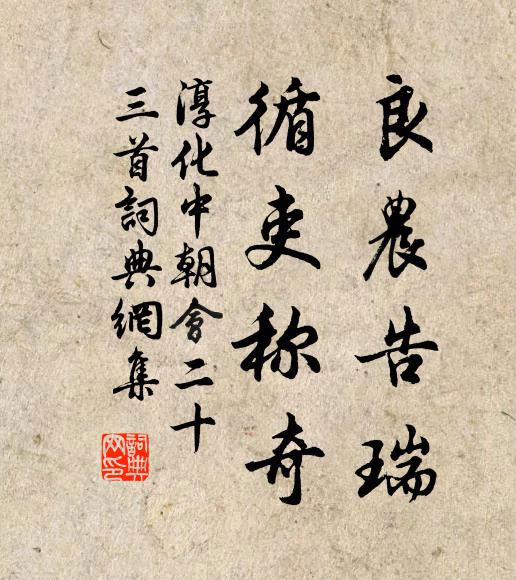 良農告瑞
循吏称奇
淳化中朝會二十
三首詞典網集
詞典
网印